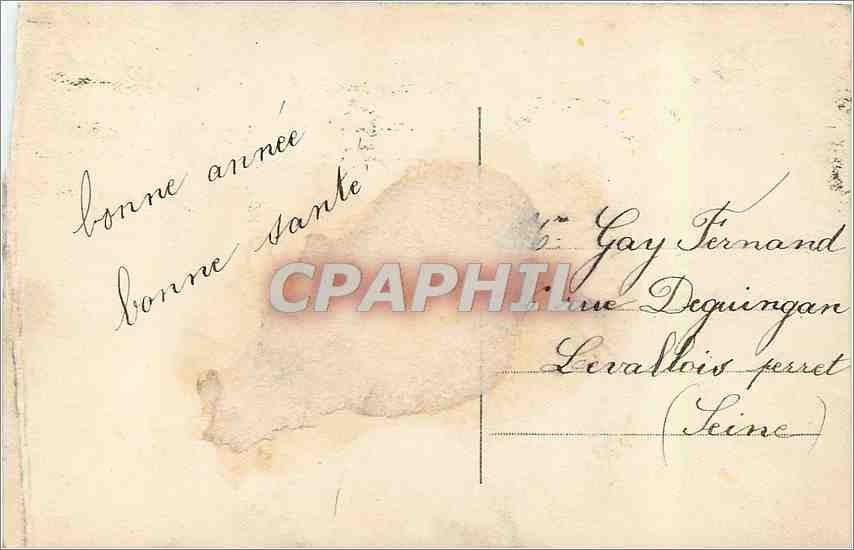 bonne année
bonne santé
Mr Gay Fernand
rue Deguingan
Levallois perret
(Seine)
CPAPHIL